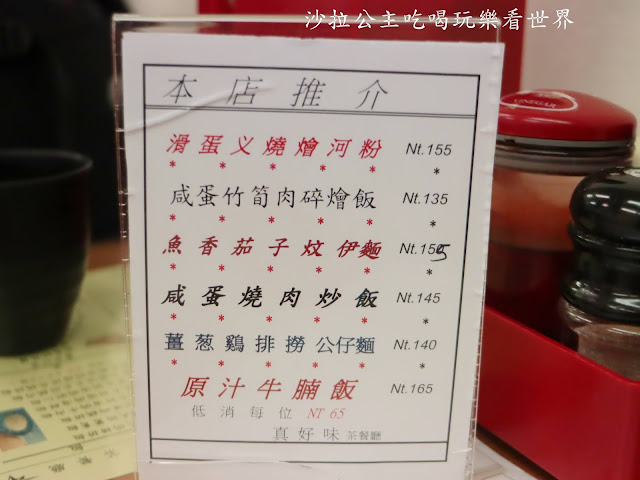 沙拉公主吃喝玩樂看世界
本店推介
滑蛋义燒燴河粉 Nt.155
* * * * * *
咸蛋竹筍肉碎燴飯 Nt.135
* * * * * *
魚香茄子炆伊麵 Nt.155
* * * * * *
咸蛋燒肉炒飯 Nt.145
* * * * * *
薑葱鷄排撈公仔麵 Nt.140
* * * * * *
原汁牛腩飯 Nt.165
低消每位 NT 65
真好味 茶餐廳
VINEGAR